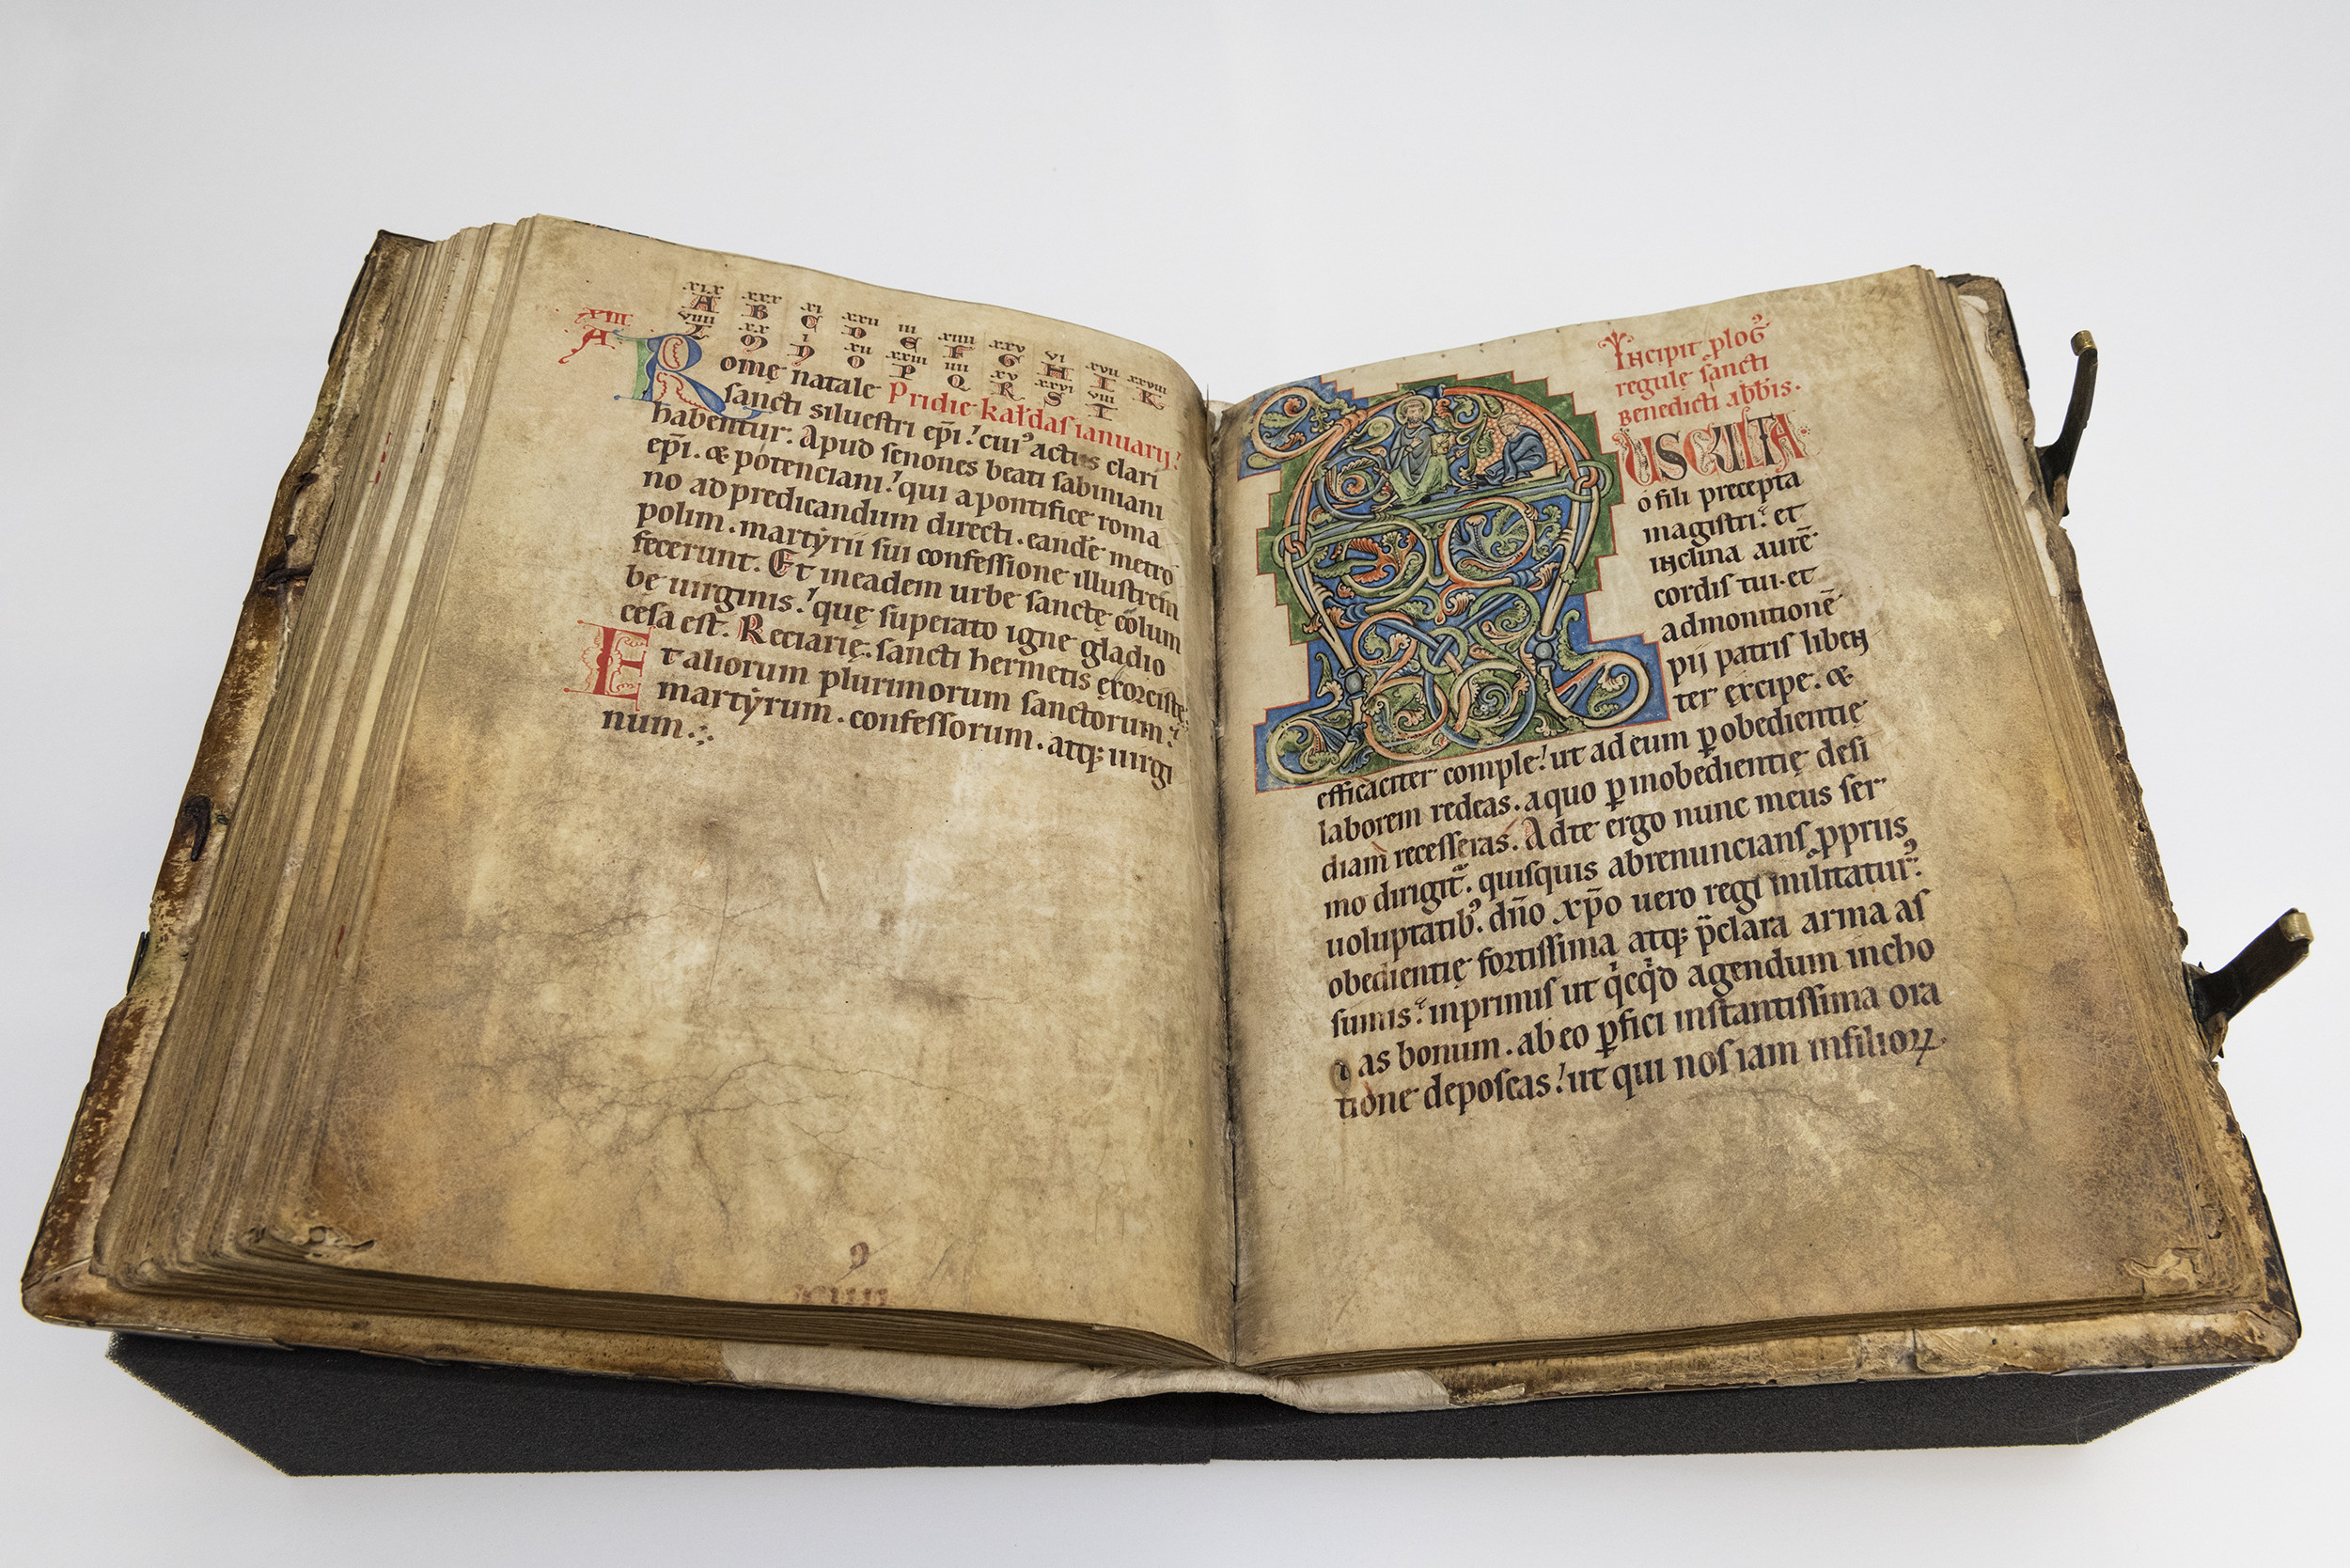 xix xxx xi xxii iii xiiii xxv vi xvii xxviii
A B C D E F G H I K
viiii xx i xii xxiii iiii xv xxvi viii
M N O P Q R S T
xiii
A
Romę natale Pridie kal̃daſ ianuarij
sancti silueſtri ep̄i. cuiꝰ actus clari
habentur. Apud ſenones beati ſabiniani
ep̄i. & potenciani. qui a pontifice roma
no ad predicandum directi. eandē metro
polim. martẏrii ſui confeſſione illuſtrem
fecerunt. Et in eadem urbe ſanctę colum
be uirginis. quę ſuperato igne gladio
ceſa eſt. Reciarię. ſancti hermetis exorciſtę.
Et aliorum plurimorum ſanctorum.
martẏrum. confeſſorum. atq; uirgi
num.
Incipit ꝓlogꝰ
regulę ſancti
Benedicti abb̄is.
AUSCULTA
o fili precepta
magiſtri. et
inclina aurē
cordiſ tui. et
admonitionē
pij patriſ liben
ter excipe. &
efficaciter comple. ut ad eum ꝑ obedientię
laborem redeas. a quo ꝑ inobedientię deſi
diam receſſeras. Ad te ergo nunc meus ſer
mo dirigit̄. quiſquis abrenuncianſ ꝓpriis
uoluptatibꝰ. dño xp̄o uero regi militaturꝰ.
obedientię fortiſſima atq; p̄clara arma aſ
ſumis. inprimiſ ut q̇cq̇d agendum incho
as bonum. ab eo ꝑfici inſtantiſſima ora
tione depoſcas. ut qui noſ iam in filioꝝ